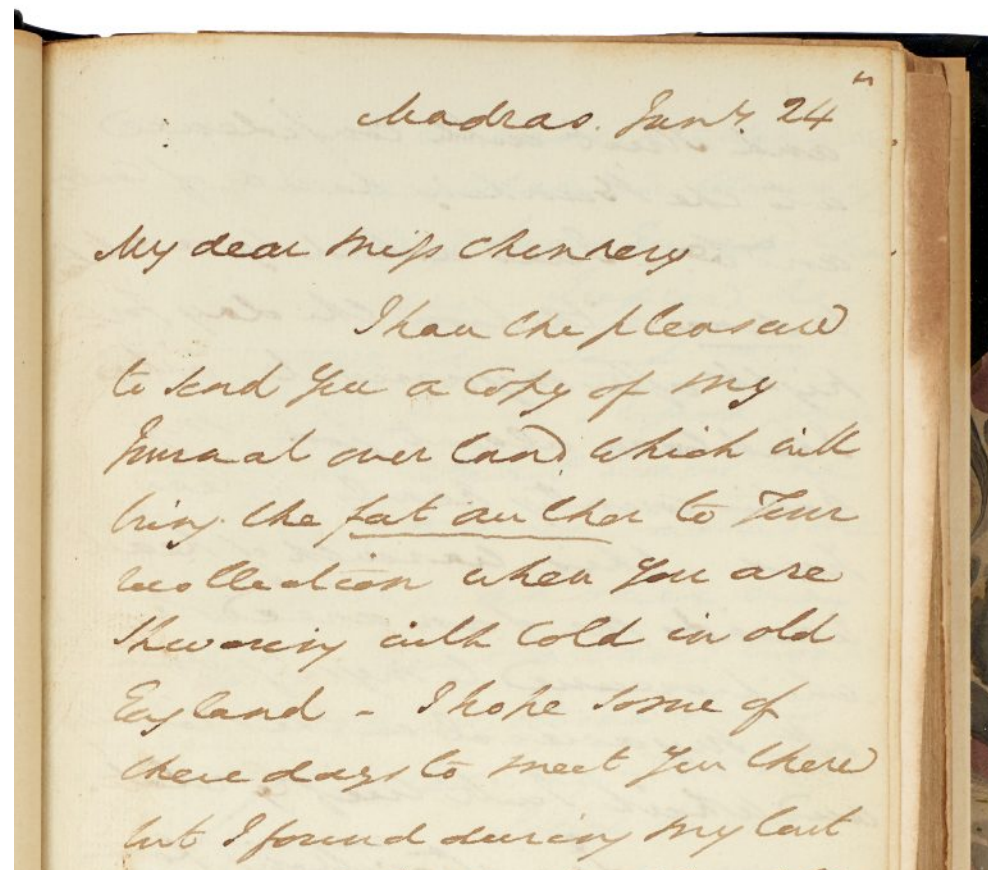 Madras. Jany. 24th
My dear Miss Chinnery
I have the pleasure
to send You a Copy of my
Journal over land. which will
bring the fat author to Your
recollection when You are
Shivering with Cold in old
England - I hope some of
these days to meet You there
but I found during my last